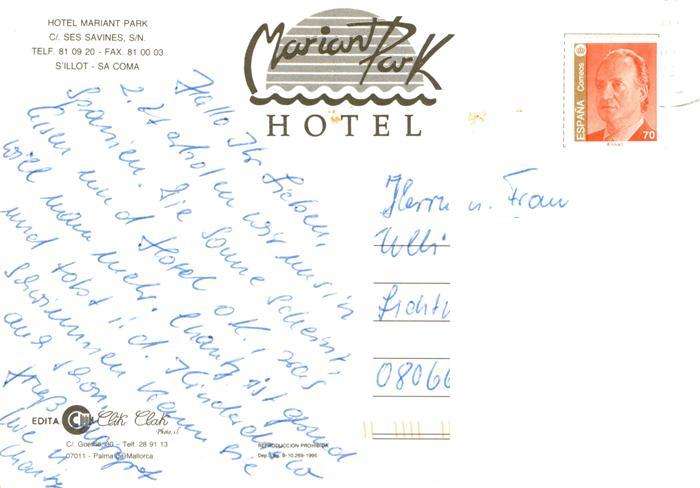 HOTEL MARIANT PARK
C/. SES SAVINES, S/N.
TELF. 81 09 20 - FAX. 81 00 03
S'ILLOT - SA COMA
Mariant Park
HOTEL
ESPAÑA Correos
70
Hallo Ihr Lieben,
z. Zt. erholen wir uns in
Spanien. Die Sonne scheint,
Essen und Hotel o.k., was
will man mehr. ist gesund
und tobt i. d.
schwimmen kann sie
auch schon.
Herrn u. Frau
Ulli
Licht
08066
EDITA Clik Clak
C/ Goethe, 30 - Telf. 28 91 13
07011 - Palma de Mallorca
REPRODUCCION PROHIBIDA